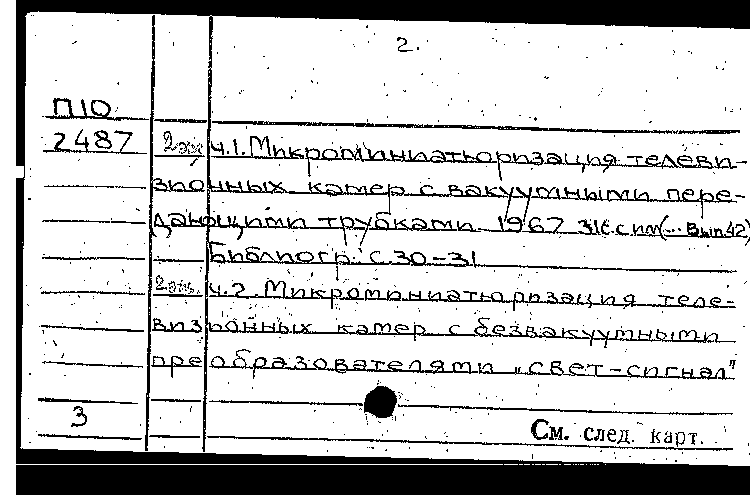 2.
П10
2487 2экз ч.1. Микроминиатюризация телеви-
зионных камер с вакуумными пере-
дающими трубками. 1967 31с. с ил (... Вып.42)
Библиогр.: с.30-31
2экз. ч.2. Микроминиатюризация теле-
визионных камер с безвакуумными
преобразователями „свет-сигнал"
3
См. след. карт.